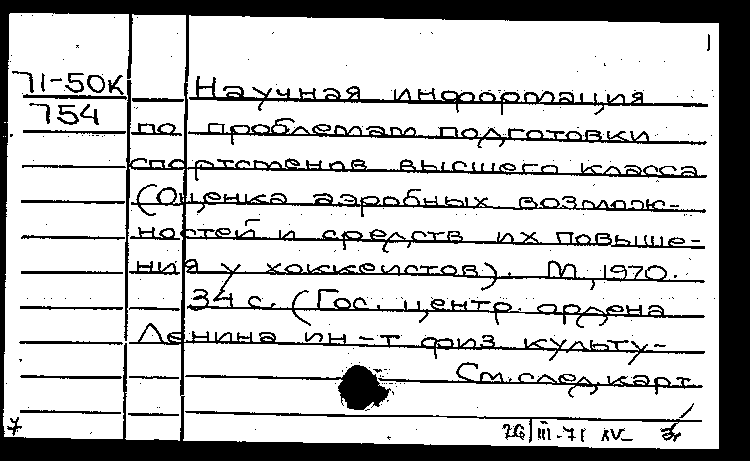 71-50к Научная информация
754 по проблемам подготовки
спортсменов высшего класса
(Оценка аэробных возмож-
ностей и средств их повыше-
ния у хоккеистов). М, 1970.
34 с. (Гос. центр. ордена
Ленина ин-т физ культу-
См. след. карт
7 26/III-71